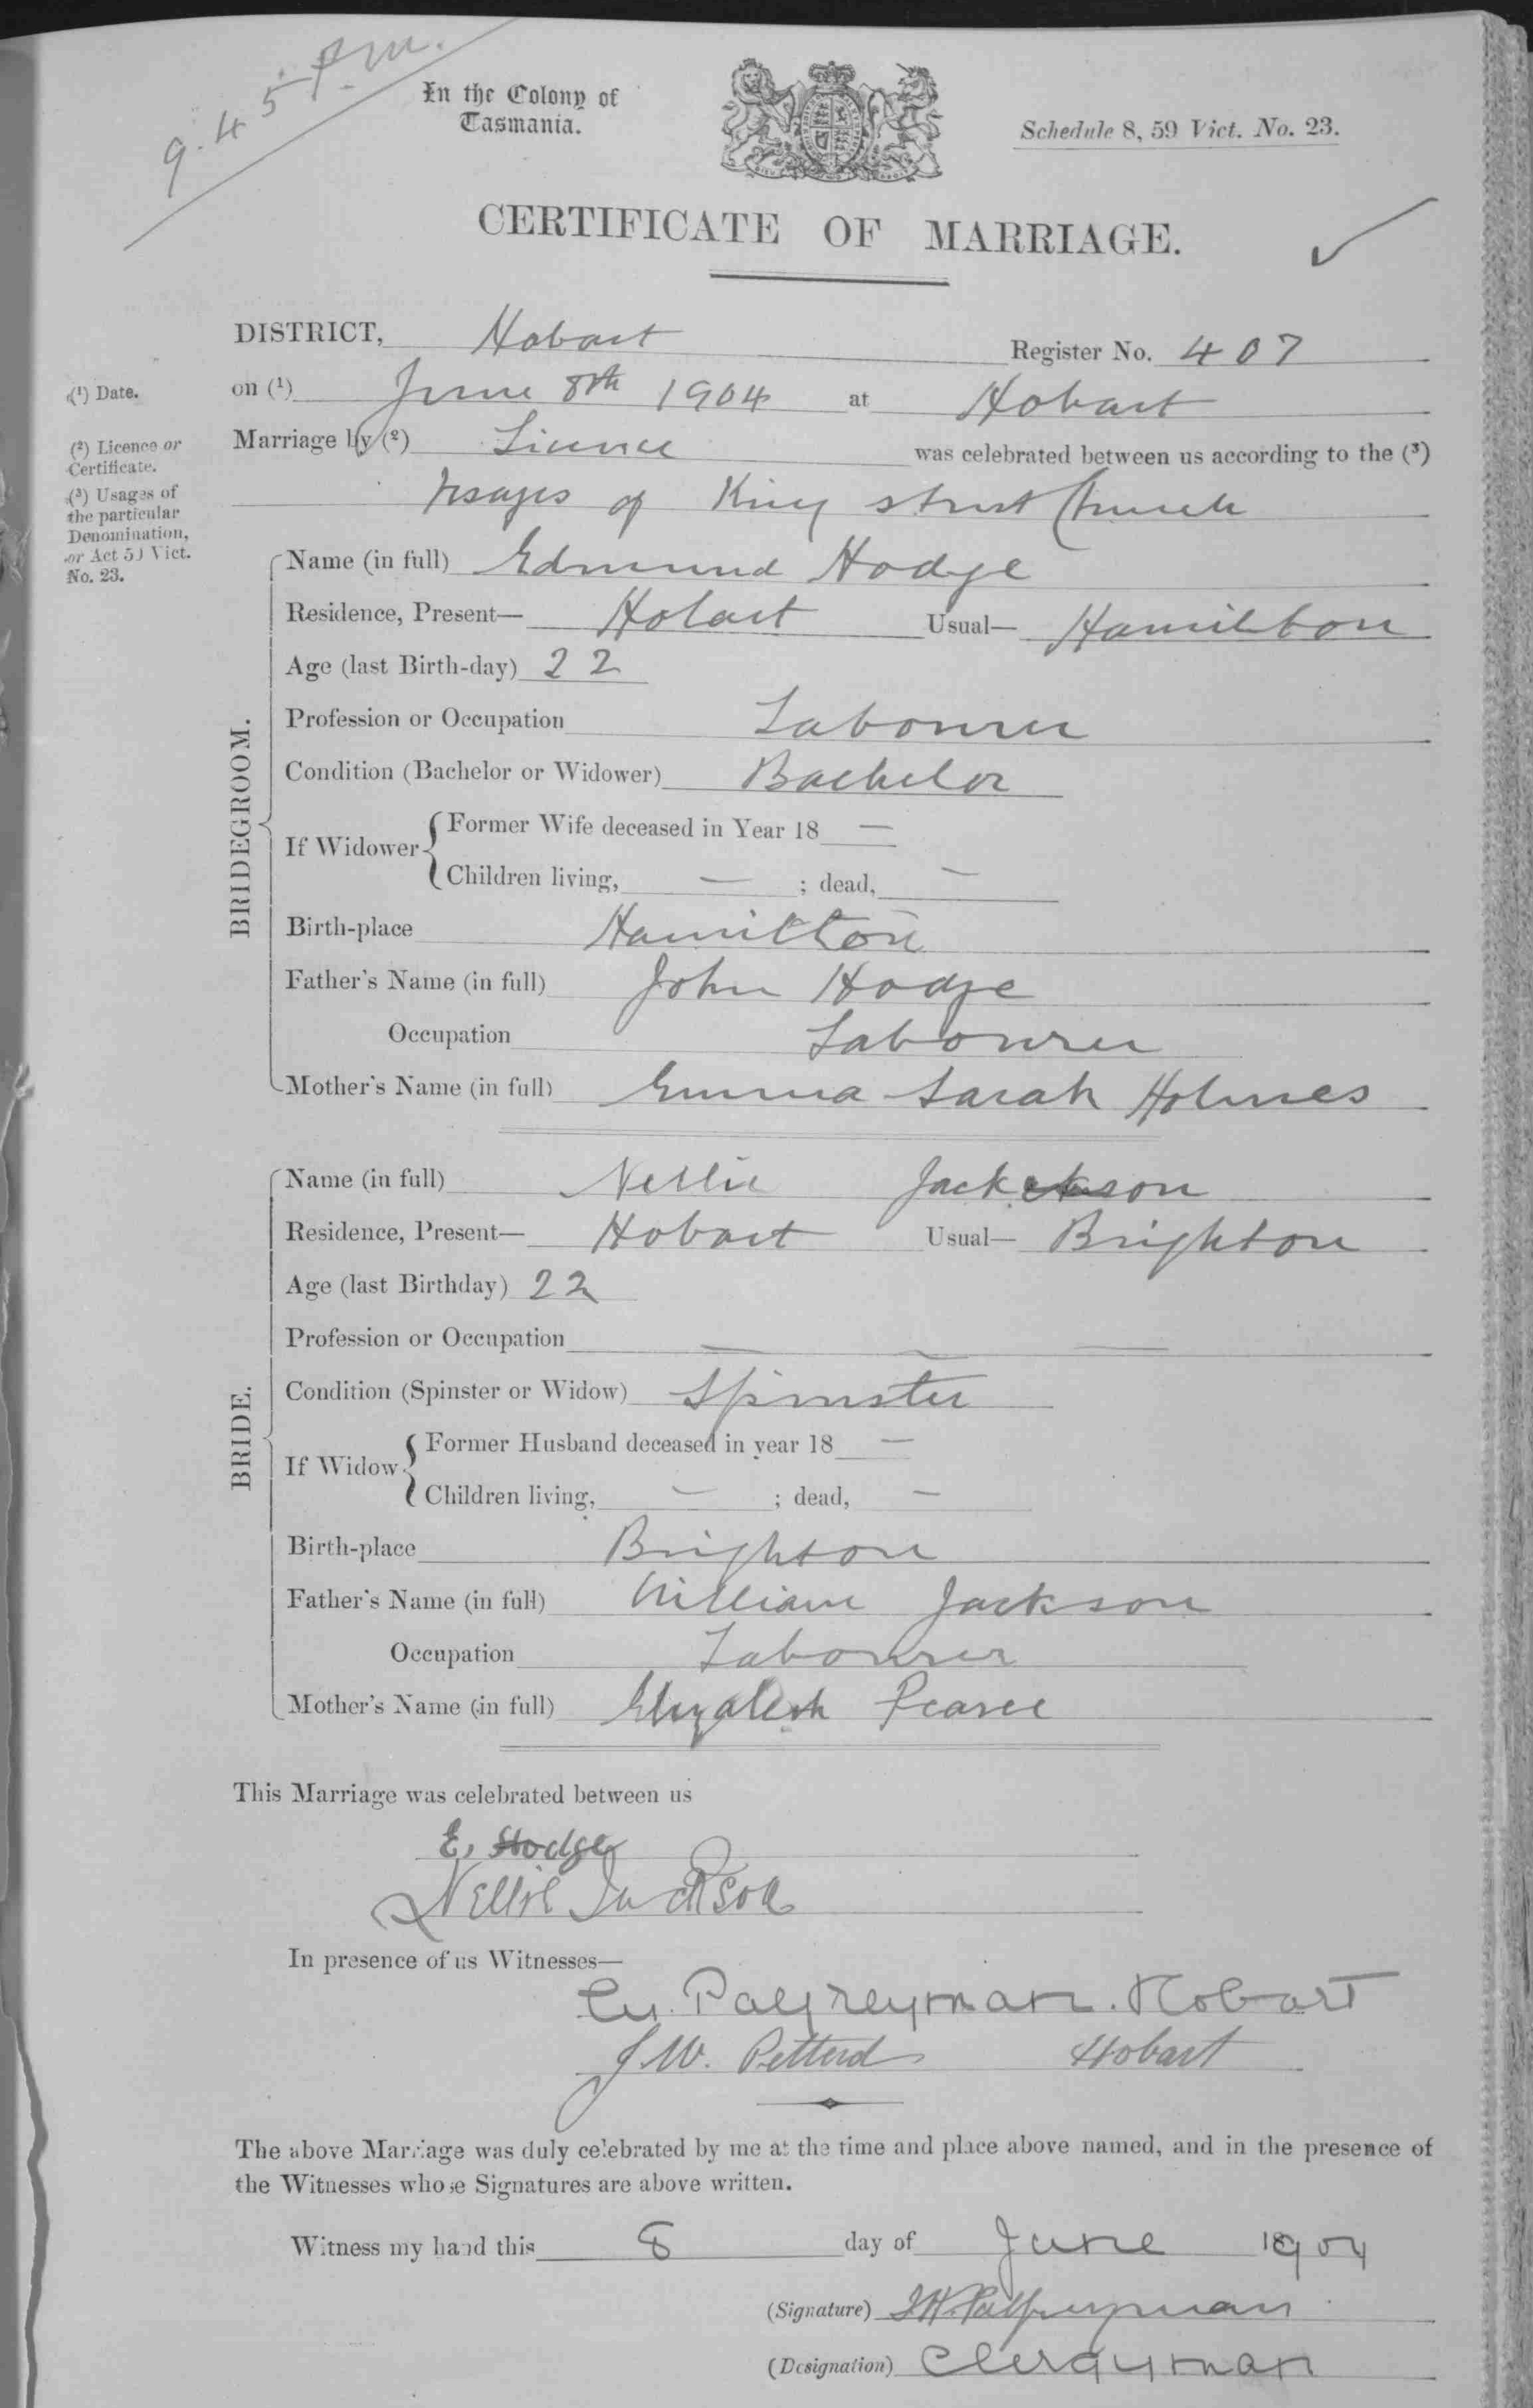 9.45 p.m.
In the Colony of
Tasmania.
Schedule 8, 59 Vict. No. 23.
CERTIFICATE OF MARRIAGE.
DISTRICT, Hobart Register No. 407
(1) Date.
on (1) June 8th 1904 at Hobart
(2) Licence or
Certificate.
Marriage by (2) Licence was celebrated between us according to the (3)
(3) Usages of
the particular
Denomination,
or Act 59 Vict.
No. 23.
Usages of King Street Church
BRIDEGROOM.
Name (in full) Edmund Hodge
Residence, Present— Hobart Usual— Hamilton
Age (last Birth-day) 22
Profession or Occupation Labourer
Condition (Bachelor or Widower) Bachelor
If Widower
Former Wife deceased in Year 18 —
Children living, — ; dead, —
Birth-place Hamilton
Father's Name (in full) John Hodge
Occupation Labourer
Mother's Name (in full) Emma Sarah Holmes
BRIDE.
Name (in full) Nellie Jackson
Residence, Present— Hobart Usual— Brighton
Age (last Birthday) 22
Profession or Occupation — — —
Condition (Spinster or Widow) Spinster
If Widow
Former Husband deceased in year 18 —
Children living, — ; dead, —
Birth-place Brighton
Father's Name (in full) William Jackson
Occupation Labourer
Mother's Name (in full) Elizabeth Pearce
This Marriage was celebrated between us
E. Hodge
Nellie Jackson
In presence of us Witnesses—
Palfreyman. Hobart
J. W. Petterd Hobart
The above Marriage was duly celebrated by me at the time and place above named, and in the presence of
the Witnesses whose Signatures are above written.
Witness my hand this 8 day of June 1904
(Signature) Palfreyman
(Designation) Clergyman